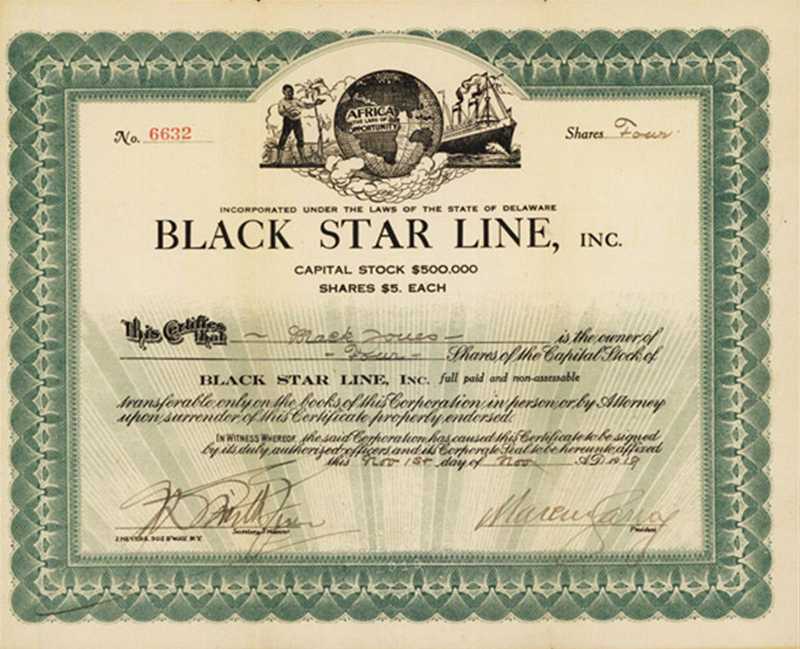 AFRICA
THE LAND OF
OPPORTUNITY
No. 6632
Shares Four
INCORPORATED UNDER THE LAWS OF THE STATE OF DELAWARE
BLACK STAR LINE, INC.
CAPITAL STOCK $500,000
SHARES $5. EACH
This Certifies that ~ Mack Jones – is the owner of
– Four – Shares of the Capital Stock of
BLACK STAR LINE, INC. full paid and non-assessable
transferable only on the books of this Corporation in person or by Attorney
upon surrender of this Certificate properly endorsed.
IN WITNESS WHEREOF, the said Corporation has caused this Certificate to be signed
by its duly authorized officers and its Corporate Seal to be hereunto affixed
this Nov 1st day of Nov A.D. 1919
Marcus Garvey
Secretary-Treasurer
President